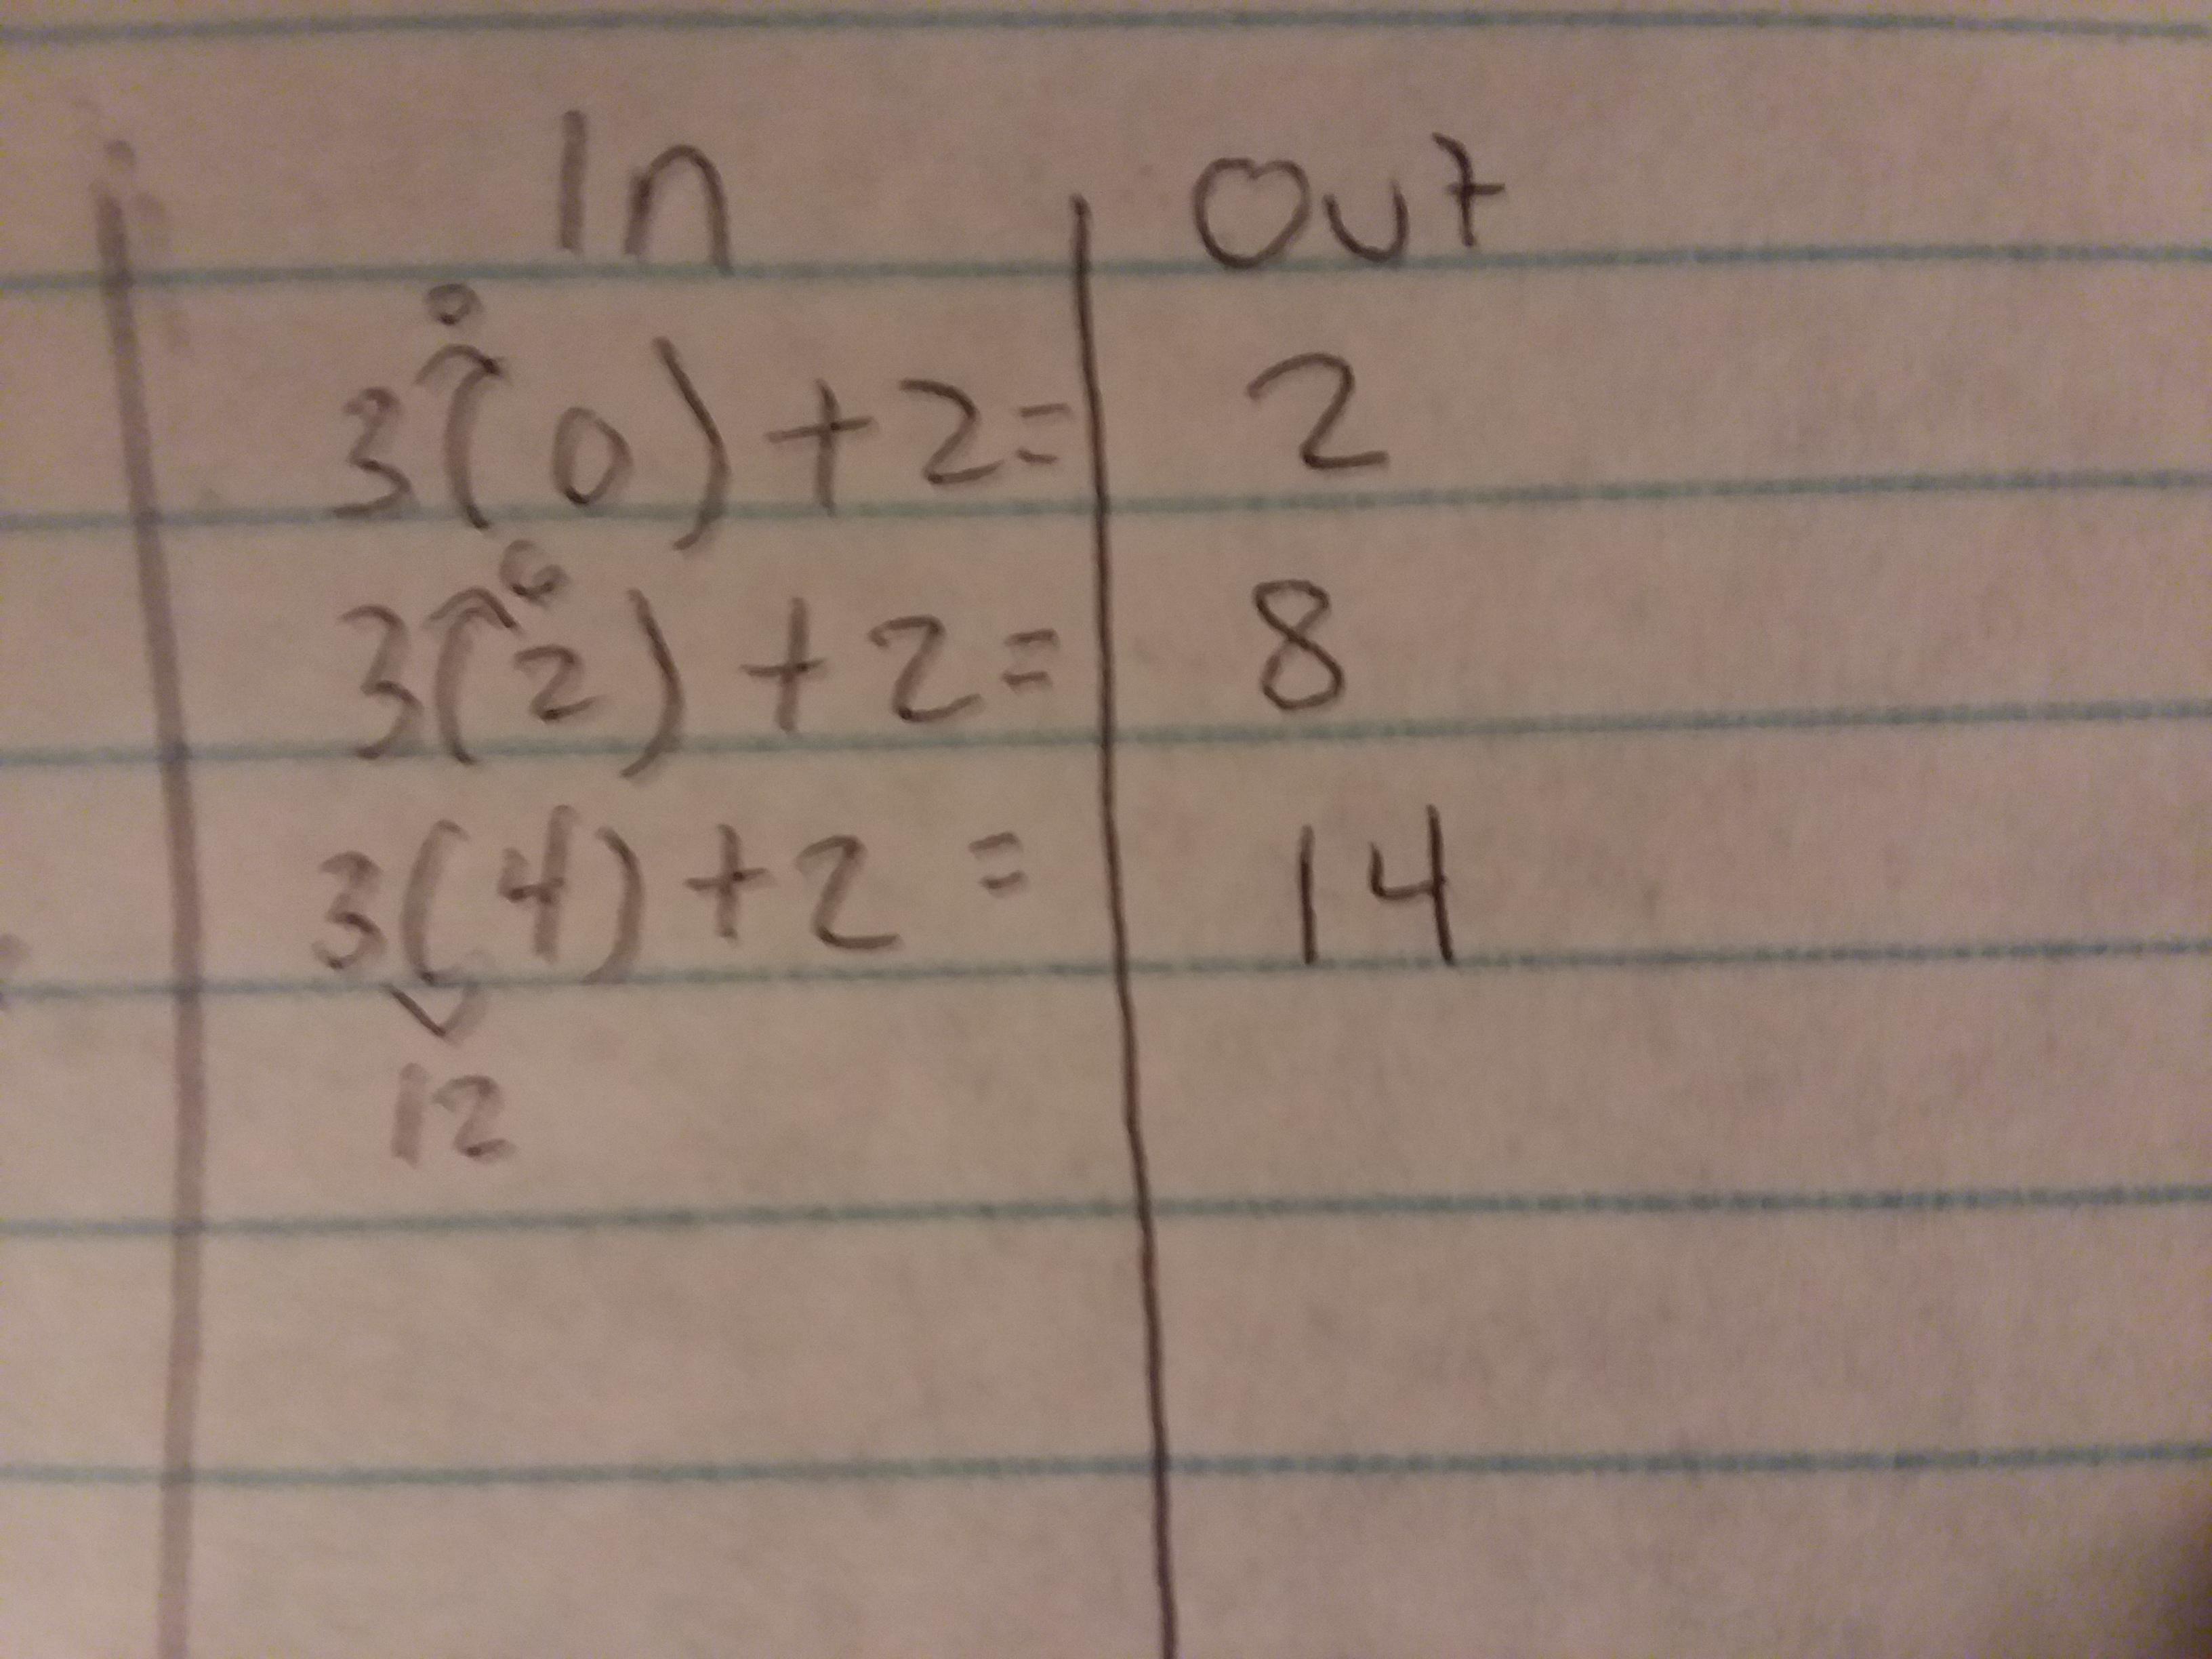 In Out
0
3(0)+2= 2
6
3(2)+2= 8
3(4)+2= 14
12